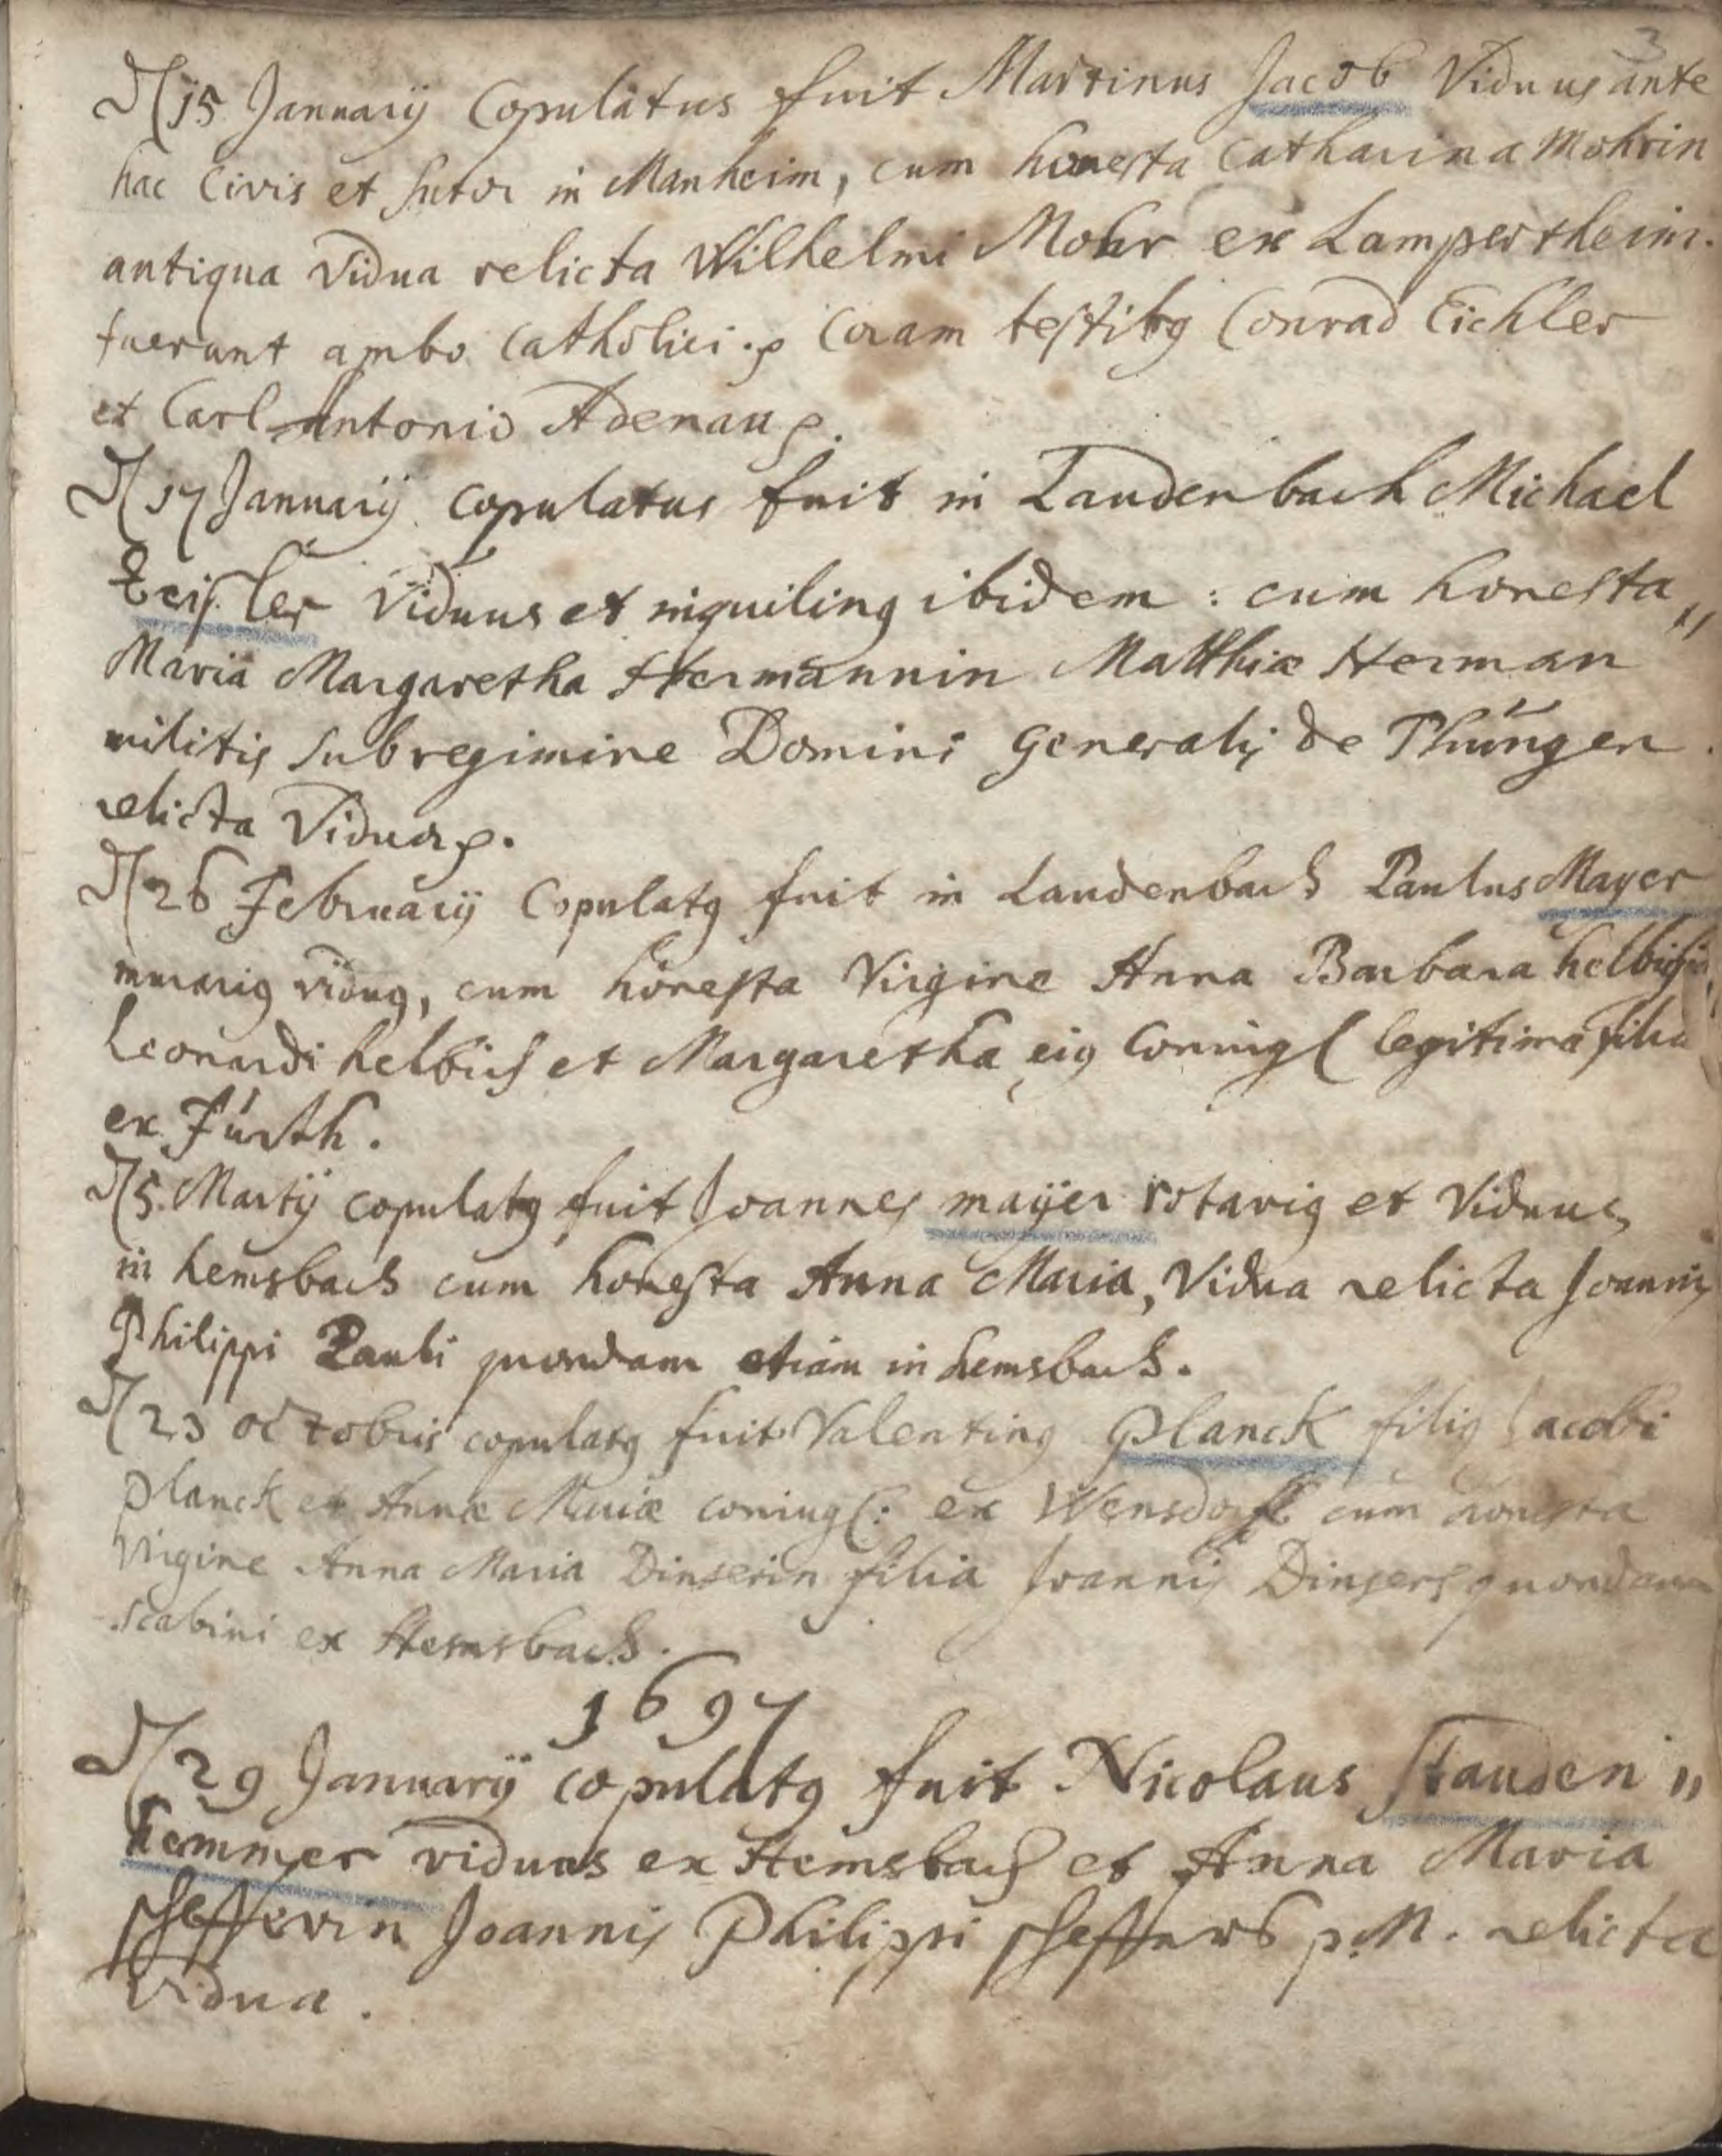 3
D 15 Januarij Copulatus fuit Martinus Jacob Viduus ante
hac Civis et sutor in Manheim, cum honesta Catharina Mohrin
antiqua Vidua relicta Wilhelmi Mohr ex Lampertheim.
fuerunt ambo Catholici. Coram testibg Conrad Eichler
et Carl Antonio Adenau
D 17 Januarij copulatus fuit in Laudenbach Michael
Zeisler Viduus et inquiling ibidem: cum honesta„
Maria Margaretha Hermannin Matthiæ Herman
militis sub regimine Domini Generalis de Thüngen
relicta Vidua
D 26 Februarij Copulatg fuit in Laudenbach Paulus Mayer
murarig vidug, cum honesta Virgine Anna Barbara
Leonardi helbich et Margaretha eig Coniug legitima filia
ex Fürth.
D 5. Martij copulatg fuit Joannes maÿer rotarig et Viduus
in hemsbach cum honesta Anna Maria, Vidua relicta Joannis
Philippi Pauli quondam etiam in hemsbach.
D 23 octobris copulatg fuit Valenting Planck filig Jacobi
Planck et Annæ Mariæ coniug: ex Wensdorff cum honesta
Virgine Anna Maria Dinserin filia Joannis Dinsers quondam
scabini ex Hemsbach.
1697
D 29 Januarij copulatg fuit Nicolaus Stauden„
hemmer viduus ex Hemsbach et Anna Maria
schefferin Joannis Philippi scheffers p.M. relicta
Vidua.